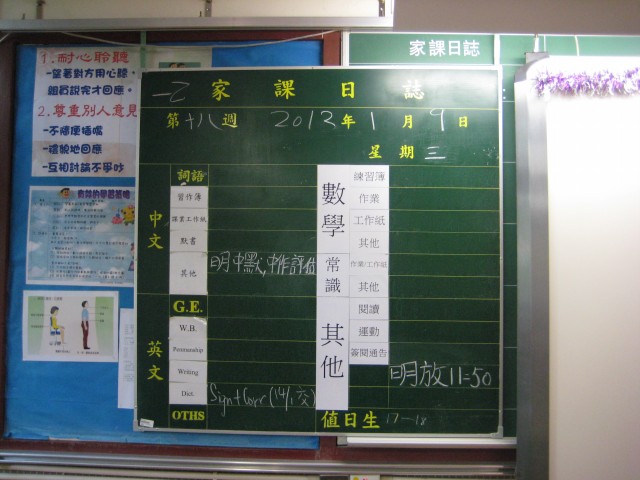 家課日誌
1.耐心聆聽
-望著對方用心聽,
2.尊重別人意見
-不隨便插嘴
-互相討論不爭吵
一乙 家課日誌
第十八週 2012年1月9日
星期三
中文
詞語
習作簿
課堂工作紙
默書
其他
明中默,中作評估
英文
G.E.
W.B.
Penmanship
Writing
Dict.
OTHS
Sign+Corr (14/1交)
數學
練習簿
作業
工作紙
其他
常識
作業/工作紙
其他
其他
閱讀
運動
簽閱通告
明放11-50
值日生 17-18